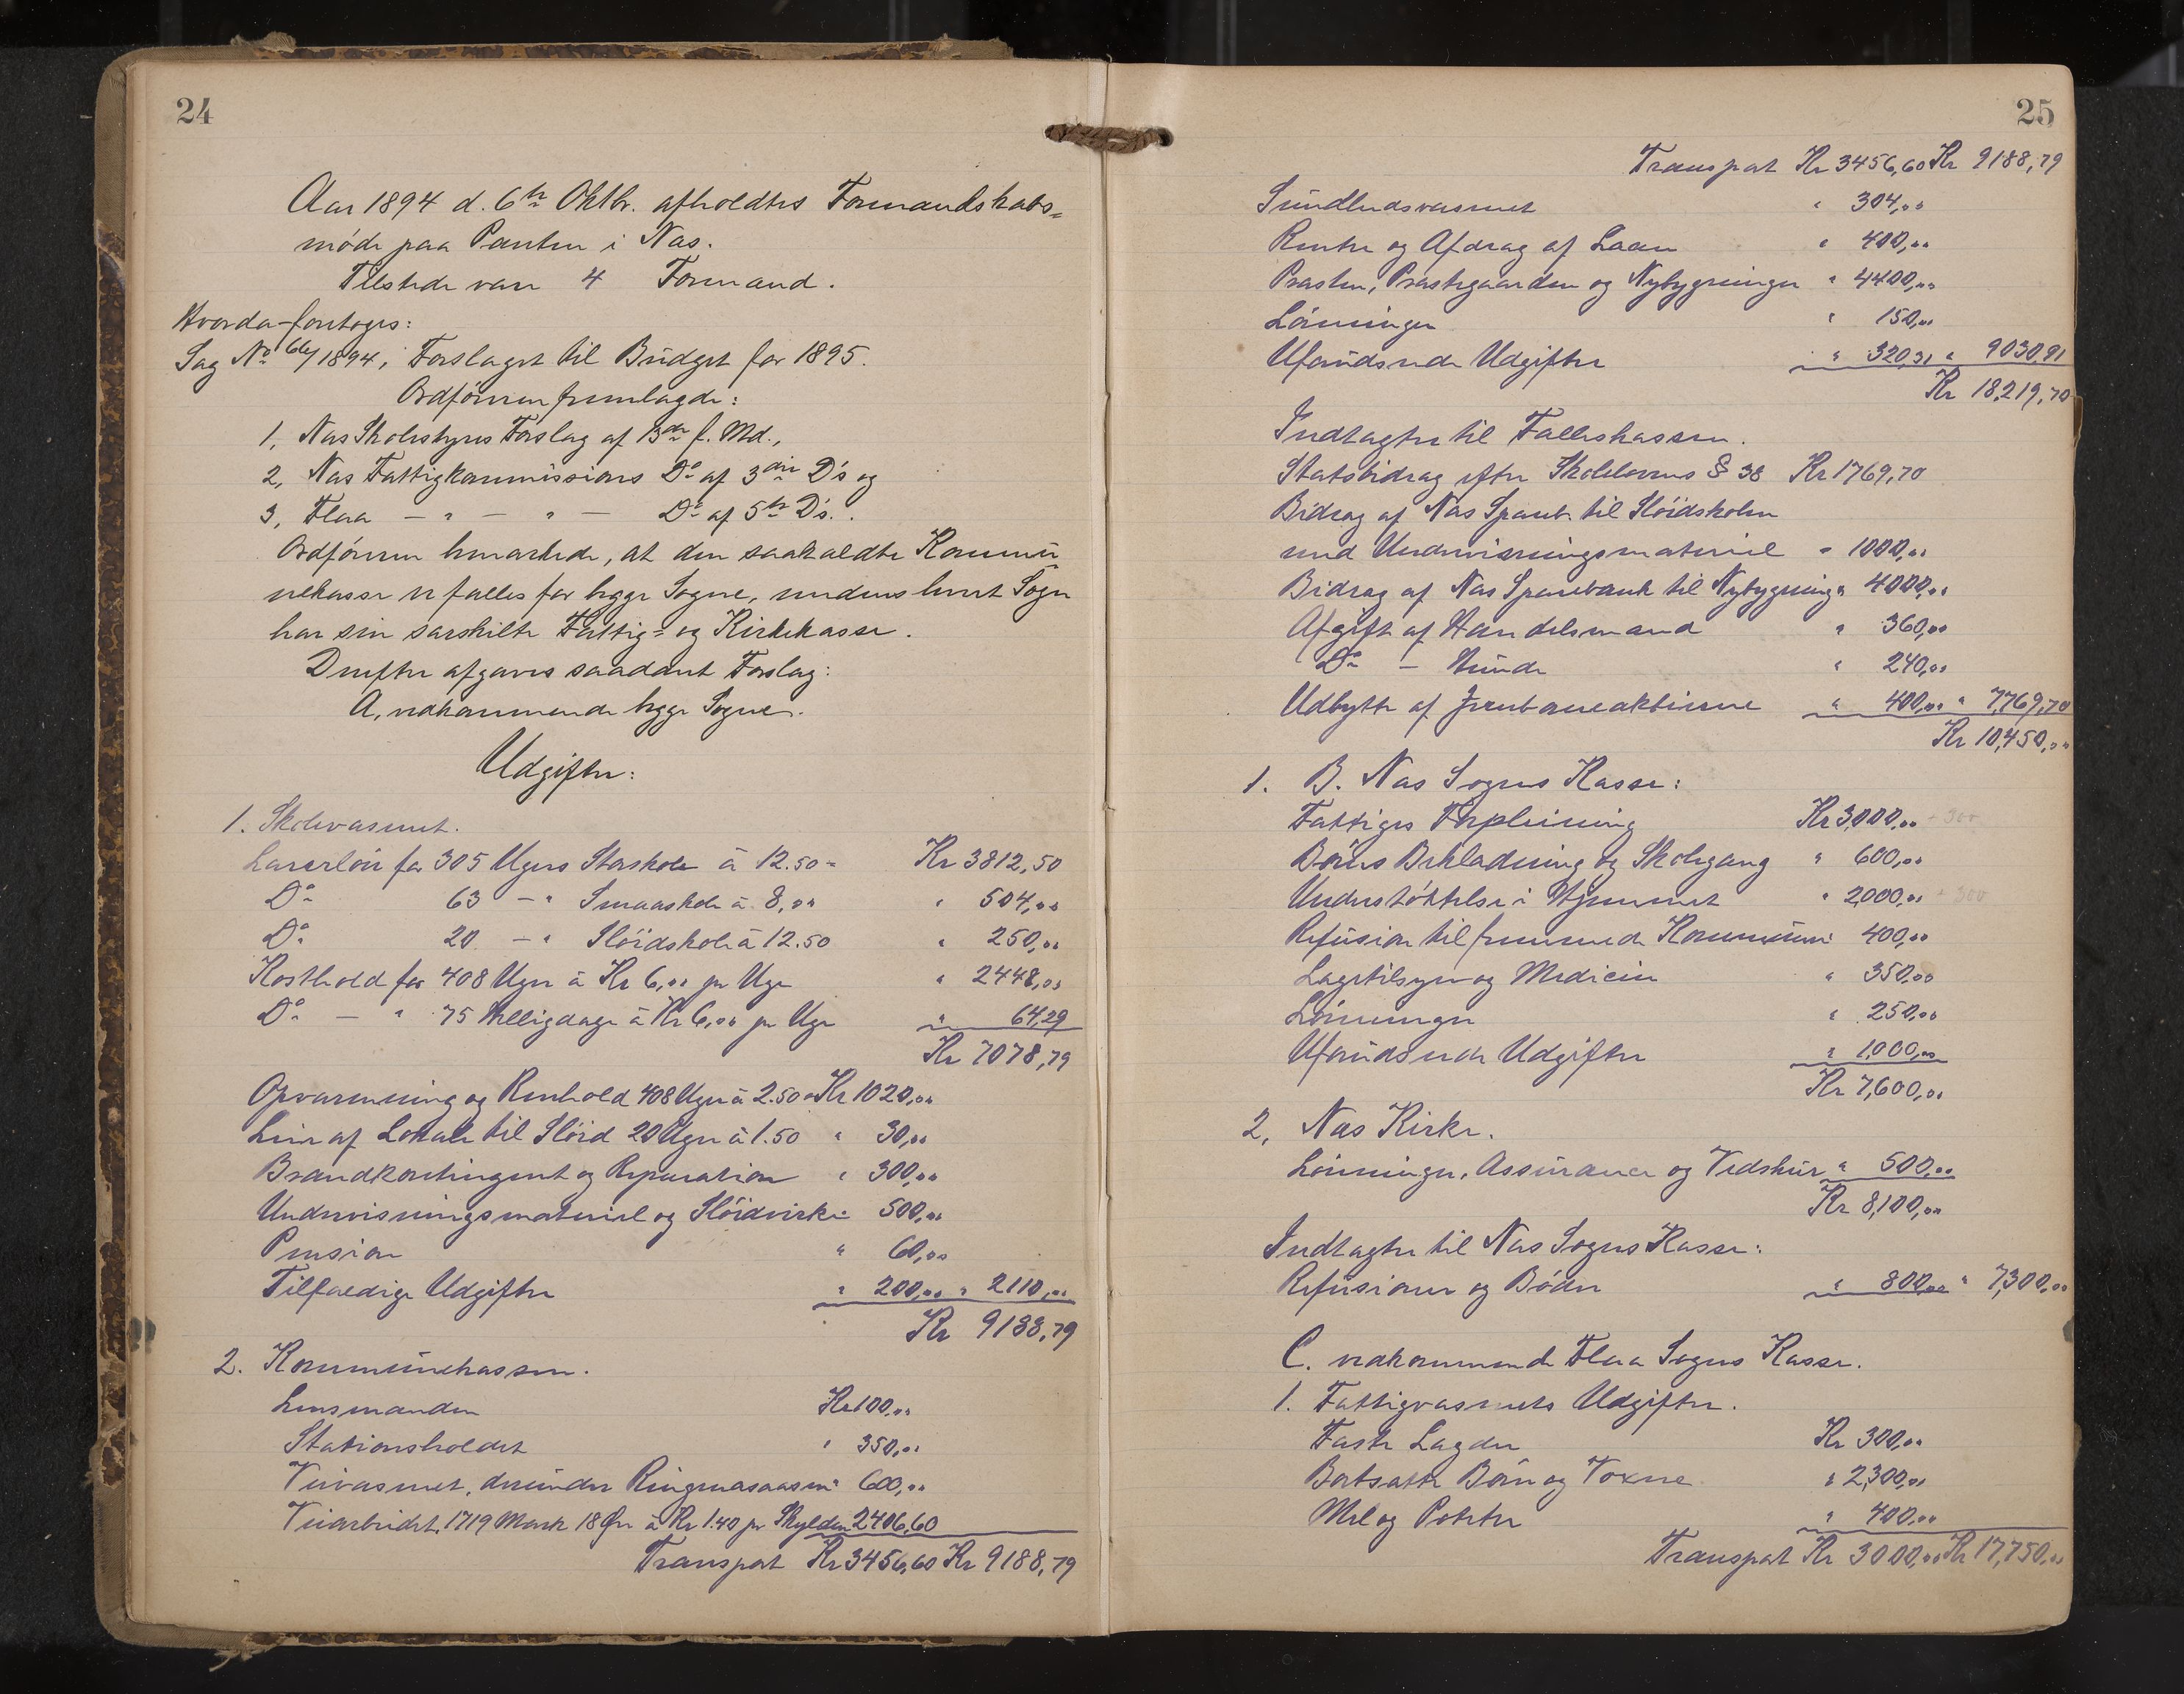 24
Aar 1894 d. 6te Oktbr. afholdtes Formandskabs=
møde paa Panten i Næs.
Tilstede vare 4 Formænd.
Hvorda foretoges:
Sag No 66/1894, Forslaget til Budget for 1895.
Ordføreren fremlagde:
1, Næs Skolestyres Forslag af 13de f. Md.,
2, Næs Fattigkommissions Do af 3die D's og
3, Flaa — " — " — Do af 5te D's.
Ordføreren bemærkede, at den saakaldte Kommu=
nekasse er fælles for begge Sogne, medens hvert Sogn
har sin særskilte Fattig= og Kirkekasse.
Derefter afgaves saadant Forslag:
A, vedkommende begge Sogne.
Udgifter:
1. Skolevæsenet.
Lærerløn for 305 Ugers Storskole à 12.50 = Kr 3812,50
Do 63 — " Smaaskole à 8,00 " 504,00
Do 20 — " Sløidskole à 12.50 " 250,00
Kosthold for 408 Uger à Kr 6,00 pr Uge " 2448,00
Do — " 75 Helligdage à Kr 6,00 pr Uge " 64,29
Kr 7078,79
Opvarmning og Renhold 408 Uger à 2.50 = Kr 1020,00
Leie af Lokale til Sløid 20 Uger à 1.50 " 30,00
Brandkontingent og Reparation " 300,00
Undervisningsmateriel og Sløidvirke " 500,00
Pension " 60,00
Tilfældige Udgifter " 200,00 " 2110,00
Kr 9188,79
2. Kommunekassen.
Lensmanden Kr 100,00
Stationsholdet " 350,00
Veivæsenet, derunder Ringnæsaasen " 600,00
Veiarbeidet, 1719 Mark 18 Øre à Kr 1.40 pr Skylden 2406,60
Transpat Kr 3456,60 Kr 9188,79
25
Transpat Kr 3456,60 Kr 9188,79
Sundhedsvæsenet " 304,00
Renter og Afdrag af Laan " 400,00
Præsten, Præstegaarden og Nybygninger " 4400,00
Lønninger " 150,00
Uforudseede Udgifter " 320,31 " 9030,91
Kr 18,219,70
Indtægter til Fælleskassen.
Statsbidrag efter Skolelovens § 38 Kr 1769,70
Bidrag af Næs Spareb. til Sløidskolen
med Undervisningsmateriel " 1000,00
Bidrag af Næs Sparebank til Nybygning " 4000,00
Afgift af Handelsmænd " 360,00
Do — Hunde " 240,00
Udbytte af Jernbaneaktierne " 400,00 " 7,769,70
Kr 10,450,00
1. B. Næs Sogns Kasse:
Fattiges Forpleining Kr 3,000,00 + 300
Børns Beklædning og Skolegang " 600,00
Understøttelse i Hjemmet " 2,000,00 + 300
Refusion til fremmede Kommuner 400,00
Lægetilsyn og Medicin " 350,00
Lønninger " 250,00
Uforudseede Udgifter " 1,000,00
Kr 7,600,00
2, Næs Kirke.
Lønninger, Assurance og Vedskur " 500,00
Kr 8,100,00
Indtægter til Næs Sogns Kasse:
Refusioner og Bøder " 800,00 " 7,300,00
C. vedkommende Flaa Sogns Kasse.
1. Fattigvæsenets Udgifter.
Faste Lægder Kr 300,00
Bortsatte Børn og Voxne " 2,300,00
Mel og Poteter " 400,00
Transpat Kr 3000,00 Kr 17,750,00